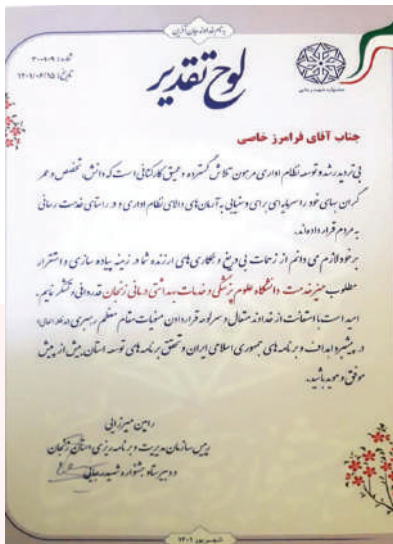 به نام خداوند جان آفرین
شماره: ۳۰۰۹۰۹
تاریخ: ۱۴۰۱/۰۶/۱۵
جشنواره شهید رجایی
لوح تقدیر
جناب آقای فرامرز خاصی
بی تردید رشد و توسعه نظام اداری مرهون تلاش گسترده و عمیق کارکنانی است که دانش، تخصص و عمر
گران بهای خود را سرمایه ای برای دستیابی به آرمان های والای نظام اداری و در راستای خدمت رسانی
به مردم قرار داده اند.
بر خود لازم می دانم از زحمات بی دریغ و همکاری های ارزنده شما در زمینه پیاده سازی و استقرار
مطلوب میز خدمت دانشگاه علوم پزشکی و خدمات بهداشتی درمانی زنجان قدردانی و تشکر نمایم.
امید است با استعانت از خداوند متعال و سرلوحه قرار دادن منویات مقام معظم رهبری (مدظله العالی)
در پیشبرد اهداف و برنامه های جمهوری اسلامی ایران و تحقق برنامه های توسعه استان بیش از پیش
موفق و موید باشید.
رامین میرزایی
رییس سازمان مدیریت و برنامه ریزی استان زنجان
و دبیر ستاد جشنواره شهید رجایی
شهریور ۱۴۰۱